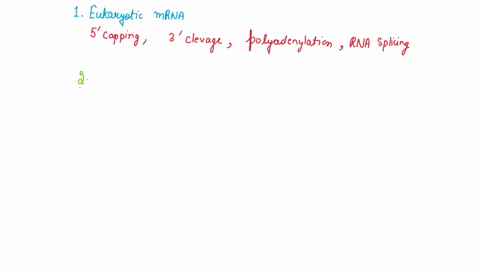 1. Eukaryotic mRNA
5' Capping, 3' clevage, polyadenylation, RNA splicing
2.